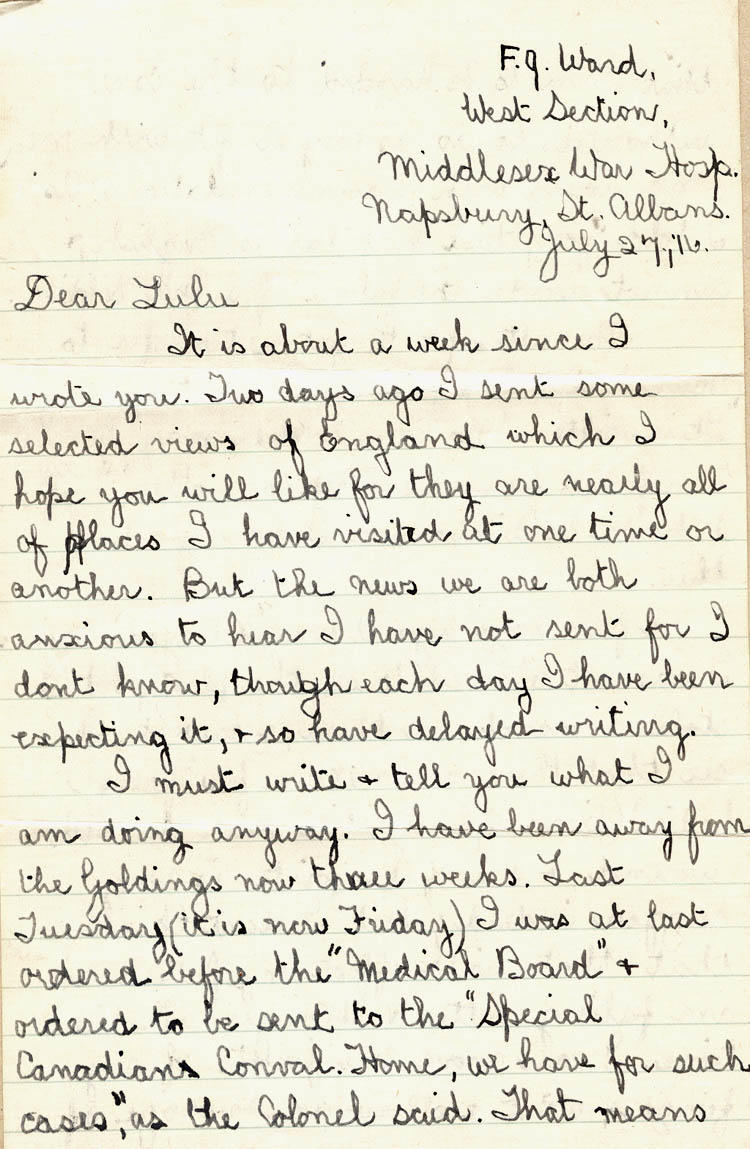 F.9. Ward,
West Section,
Middlesex War Hosp.
Napsbury, St. Albans.
July 27, '16.
Dear Lulu
It is about a week since I
wrote you. Two days ago I sent some
selected views of England which I
hope you will like for they are nearly all
of places I have visited at one time or
another. But the news we are both
anxious to hear I have not sent for I
dont know, though each day I have been
expecting it, & so have delayed writing.
I must write & tell you what I
am doing anyway. I have been away from
the Goldings now three weeks. Last
Tuesday (it is now Friday) I was at last
ordered before the "Medical Board" &
ordered to be sent to the "Special
Canadians Conval. Home, we have for such
cases", as the Colonel said. That means